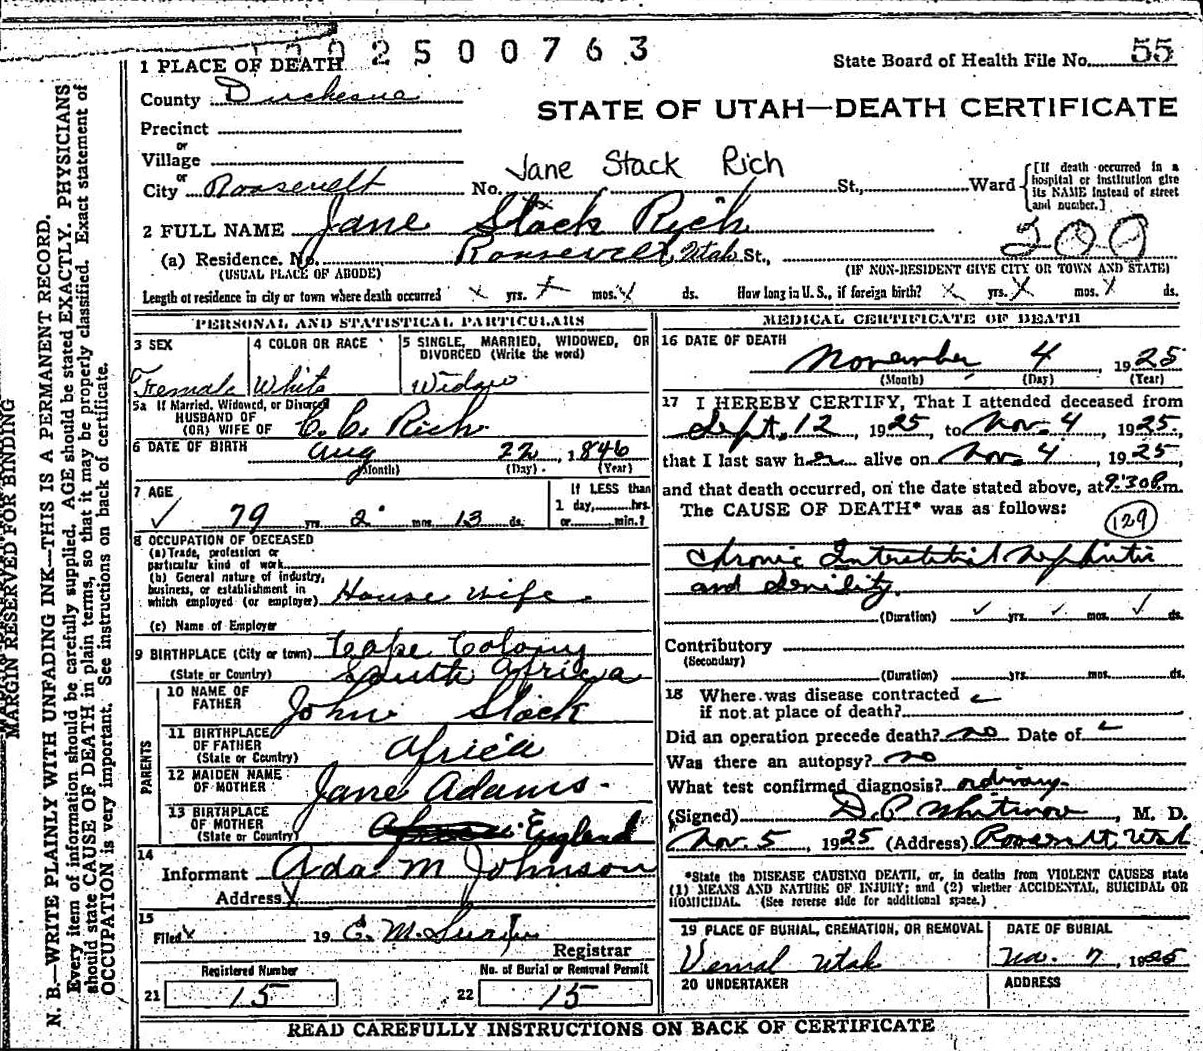 2500763
1 PLACE OF DEATH
State Board of Health File No. 55
County Duchesne
STATE OF UTAH—DEATH CERTIFICATE
Precinct
or
Village
or
City Roosevelt No. Jane Stack Rich St., Ward
[If death occurred in a hospital or institution give its NAME instead of street and number.]
2 FULL NAME Jane Stock Rich
200
(a) Residence. No. Roosevelt, Utah St.,
(USUAL PLACE OF ABODE) (IF NON-RESIDENT GIVE CITY OR TOWN AND STATE)
Length of residence in city or town where death occurred x yrs. x mos. x ds. How long in U. S., if foreign birth? x yrs. x mos. x ds.
PERSONAL AND STATISTICAL PARTICULARS
3 SEX
Female
4 COLOR OR RACE
White
5 SINGLE, MARRIED, WIDOWED, OR DIVORCED (Write the word)
Widow
5a If Married, Widowed, or Divorced
HUSBAND OF
(OR) WIFE OF C. C. Rich
6 DATE OF BIRTH Aug 22, 1846
(Month) (Day) (Year)
7 AGE
✓ 79 yrs. 2 mos. 13 ds.
If LESS than
1 day, hrs.
or min.?
8 OCCUPATION OF DECEASED
(a) Trade, profession or
particular kind of work
(b) General nature of industry,
business, or establishment in
which employed (or employer) House wife.
(c) Name of Employer
9 BIRTHPLACE (City or town) Cape Colony
(State or Country) South Africa
PARENTS
10 NAME OF
FATHER John Stock
11 BIRTHPLACE
OF FATHER
(State or Country) Africa
12 MAIDEN NAME
OF MOTHER Jane Adams.
13 BIRTHPLACE
OF MOTHER
(State or Country) England
14
Informant Ada M Johnson
Address x
15
Filed x 19 C. M.
Registrar
Registered Number
21 15
No. of Burial or Removal Permit
22 15
MEDICAL CERTIFICATE OF DEATH
16 DATE OF DEATH
November 4, 1925
(Month) (Day) (Year)
17 I HEREBY CERTIFY, That I attended deceased from
Sept. 12, 1925, to Nov. 4, 1925,
that I last saw her alive on Nov. 4, 1925,
and that death occurred, on the date stated above, at 9:30 P.m.
The CAUSE OF DEATH* was as follows:
129
Chronic Interstitial Nephritis
and Senility.
(Duration) ✓ yrs. ✓ mos. ✓ ds.
Contributory
(Secondary)
(Duration) yrs. mos. ds.
18 Where was disease contracted
if not at place of death?
Did an operation precede death? no Date of
Was there an autopsy? no
What test confirmed diagnosis? ordinary
(Signed) D. P. Whitmore, M. D.
Nov. 5, 1925 (Address) Roosevelt, Utah
*State the DISEASE CAUSING DEATH, or, in deaths from VIOLENT CAUSES state
(1) MEANS AND NATURE OF INJURY; and (2) whether ACCIDENTAL, SUICIDAL OR
HOMICIDAL. (See reverse side for additional space.)
19 PLACE OF BURIAL, CREMATION, OR REMOVAL
Vernal Utah
DATE OF BURIAL
Nov. 7, 1925
20 UNDERTAKER
ADDRESS
READ CAREFULLY INSTRUCTIONS ON BACK OF CERTIFICATE
MARGIN RESERVED FOR BINDING
N. B.—WRITE PLAINLY WITH UNFADING INK—THIS IS A PERMANENT RECORD.
Every item of information should be carefully supplied. AGE should be stated EXACTLY. PHYSICIANS
should state CAUSE OF DEATH in plain terms, so that it may be properly classified. Exact statement of
OCCUPATION is very important. See instructions on back of certificate.